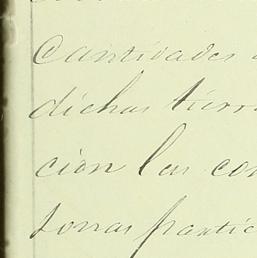 Cantidades
dichas tierr
cion las con
sonas partic